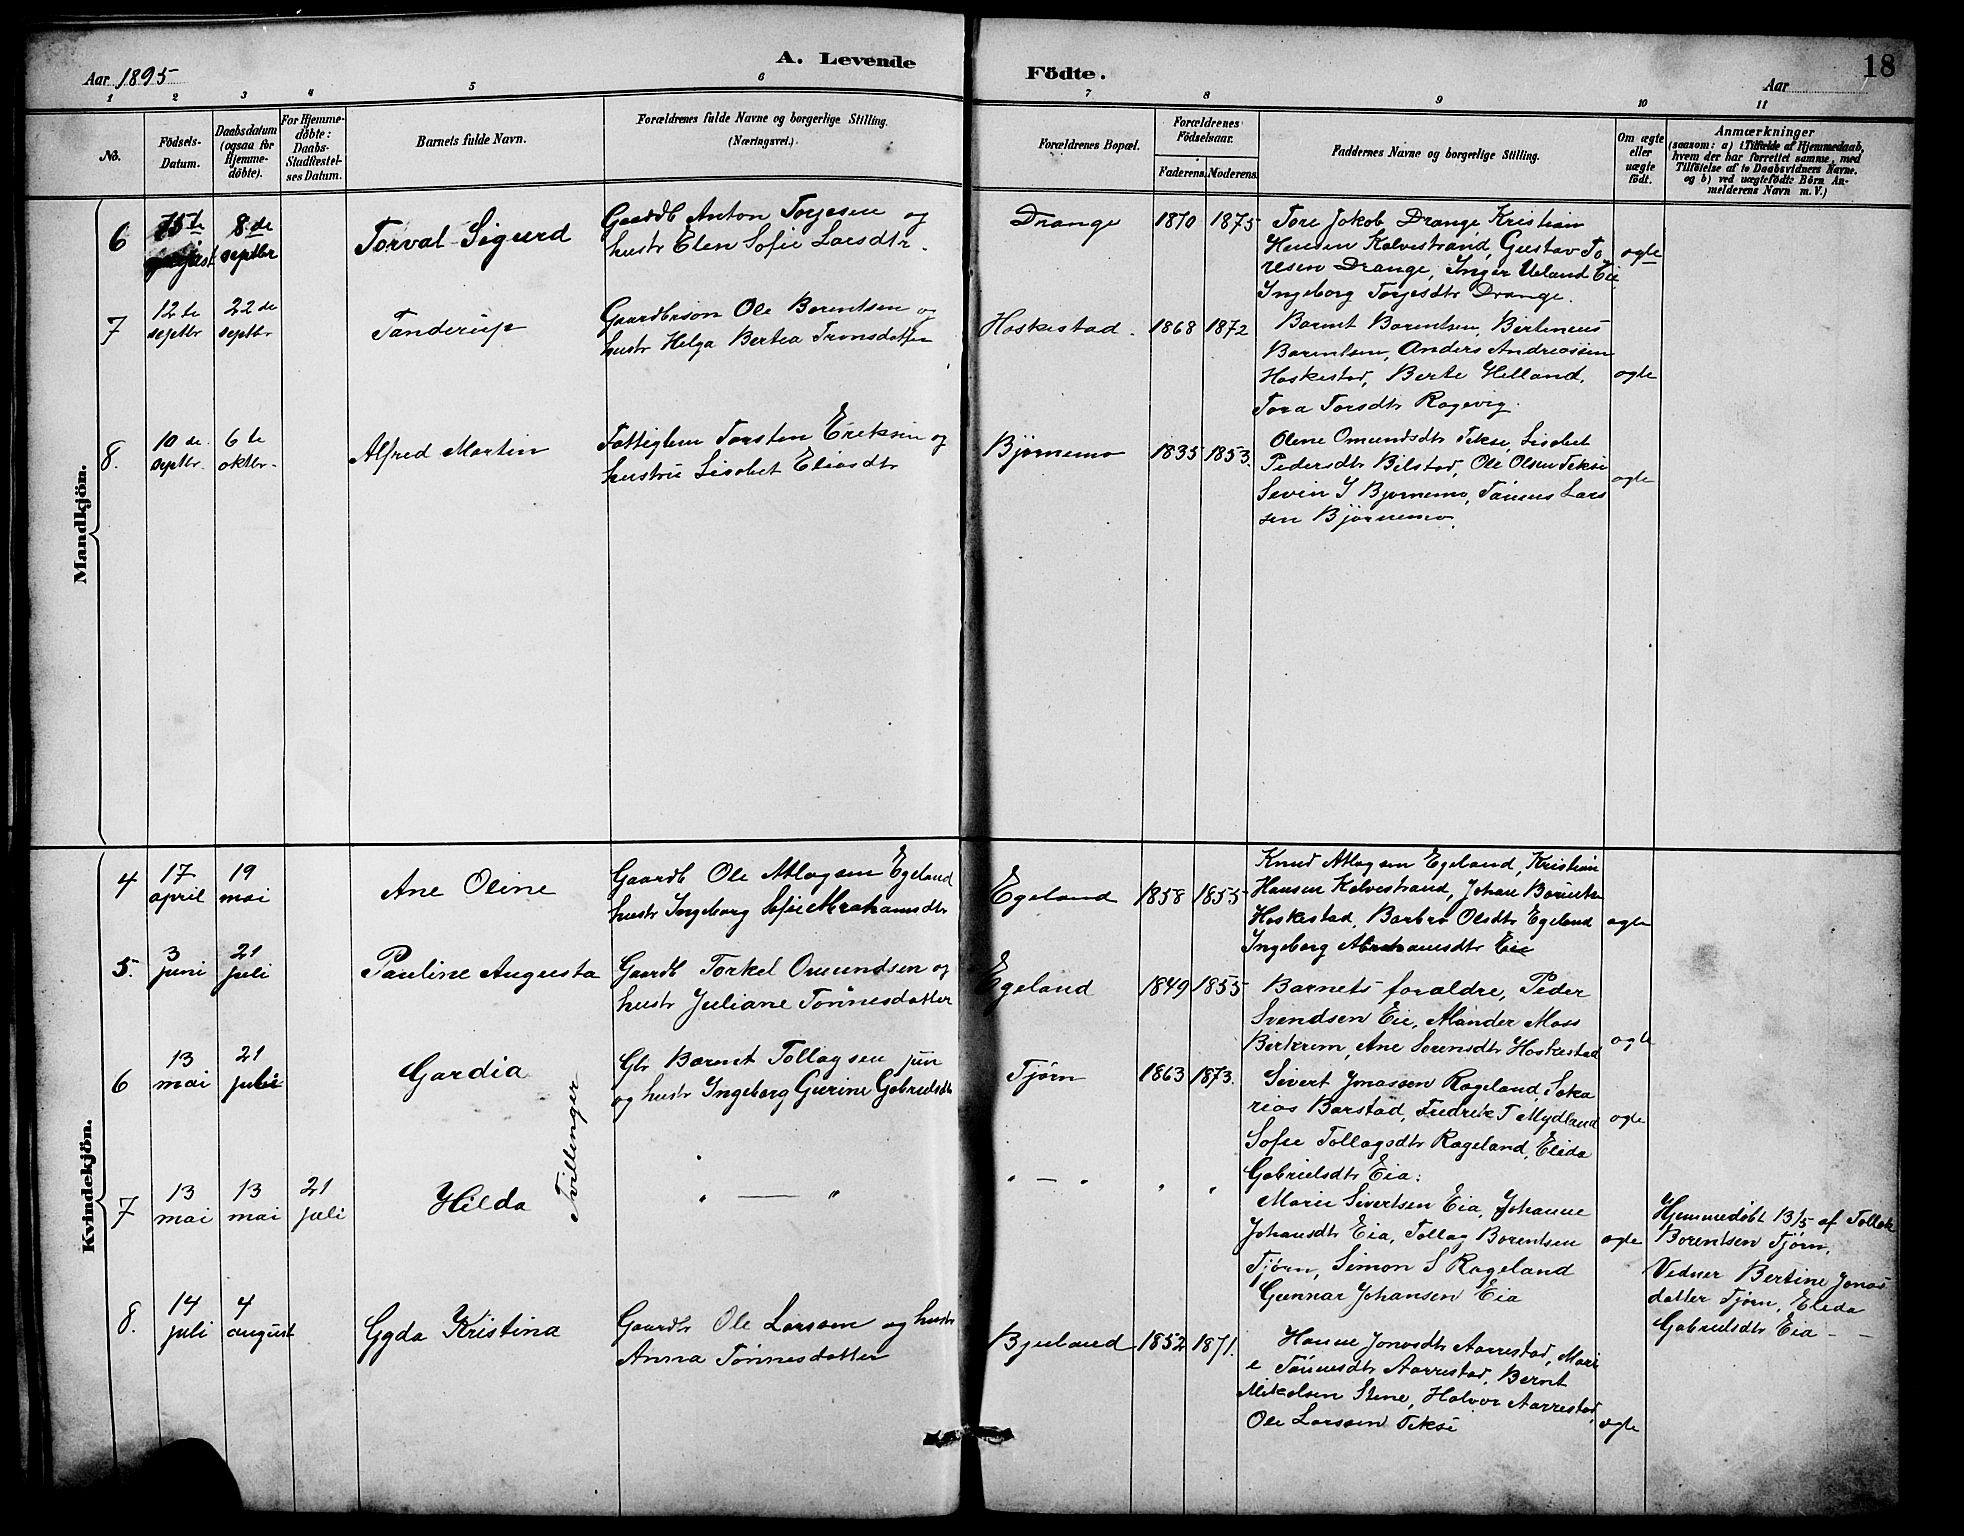 Aar 1895
A. Levende
Födte.
Aar
18
1 2 3 4 5 6 7 8 9 10 11
No.
Födsels-
Datum.
Daabsdatum
(ogsaa for
Hjemme-
döbte).
For Hjemme-
döbte:
Daabs-
Stadfæstel-
ses Datum.
Barnets fulde Navn.
Forældrenes fulde Navne og borgerlige Stilling.
(Næringsvei.)
Forældrenes Bopæl.
Forældrenes
Födselsaar.
Faderens. Moderens.
Faddernes Navne og borgerlige Stilling.
Om ægte
eller
uægte
födt.
Anmærkninger
(saasom: a) i Tilfælde af Hjemmedaab,
hvem der har forrettet samme, med
Tilföielse af to Daabsvidners Navne.
og b) ved uægtefödte Börn An-
melderens Navn m. V.)
Mandkjön.
6
8 de
septbr
Torval Sigurd
Gaardb Anton Torjesen og
hustr Elen Sofie Larsdtr.
Drange
1870 1875
Tore Jakob Drange Kristian
Hansen Kalvestrand, Gustav To
resen Drange, Inger Ueland Eie
Ingeborg Torjesdtr Drange.
ægte
7
12 te
septbr
22 de
septbr
Tanderup
Gaardbrson Ole Berentsen og
hustr Helga Bertea Tronsdatter
Haskestad.
1868 1872
Barent Barentsen, Bertineus
Barentsen, Anders Andreassen
Haskestad, Berte Helland,
Tora Torsdtr Ragevig.
ægte
8.
10 de
septbr.
6 te
oktbr.
Alfred Martin
Fattiglem Torsten Eriksen og
hustru Lisabet Eliasdtr
Bjørnemo
1835 1853.
Olene Omundsdtr Tekse, Lisabet
Pedersdtr Bilstad, Ole Olsen Tekse
Sevin S Bjørnemo, Tønnes Lars
sen Bjørnemo.
ægte
Kvindekjön.
4
17
april
19
mai
Ane Oline
Gaardb Ole Atlagsen Egeland
hustr Ingeborg Sofie Abrahamsdtr
Egeland
1858 1855
Knud Atlagsen Egeland, Kristian
Hansen Kalvestrand, Johan Barentsen
Haskestad, Barbro Olsdtr Egeland
Ingeborg Abrahamsdtr Eie
ægte
5.
3
juni
21
juli
Pauline Augusta
Gaardb Torkel Omundsen og
hustr Juliane Tønnesdatter
Egeland
1849 1855
Barnets forældre, Peder
Svendsen Eie, Mander Moss
Birkrem, Ane Sørensdtr Haskestad
ægte
6
13
mai
21
juli
Gardia
Gbr Barent Tollagsen jun
og hustr Ingeborg Gurine Gabrielsdtr
Tjørn
1863 1873.
Sivert Jonassen Rageland, Saka
rias Barstad, Fredrik T Mydland
Sofie Tollagsdtr Rageland, Elida
Gabrielsdtr Eia.
ægte
Tvillinger
7
13
mai
13
mai
21
juli
Hilda
" — "
" — "
" "
Marie Sivertsen Eia, Johanne
Johansdtr Eia, Tollag Barentsen
Tjørn, Simon S Rageland
Gunnar Johansen Eia
ægte
Hjemmedøbt 13/5 af Tollak
Barentsen Tjørn.
Vidner Bertine Jonas
datter Tjørn, Elida
Gabrielsdtr Eia —
8.
14
juli
4
august
Gyda Kristina
Gaardbr Ole Larssen og hustr
Anna Tønnesdatter
Bjuland
1852 1871.
Hanne Jonasdtr Aarrestad, Mari
e Tønnesdtr Aarrestad, Bernt
Mikalsen Stene, Halvor Aarrestad,
Ole Larssen Tekse
ægte